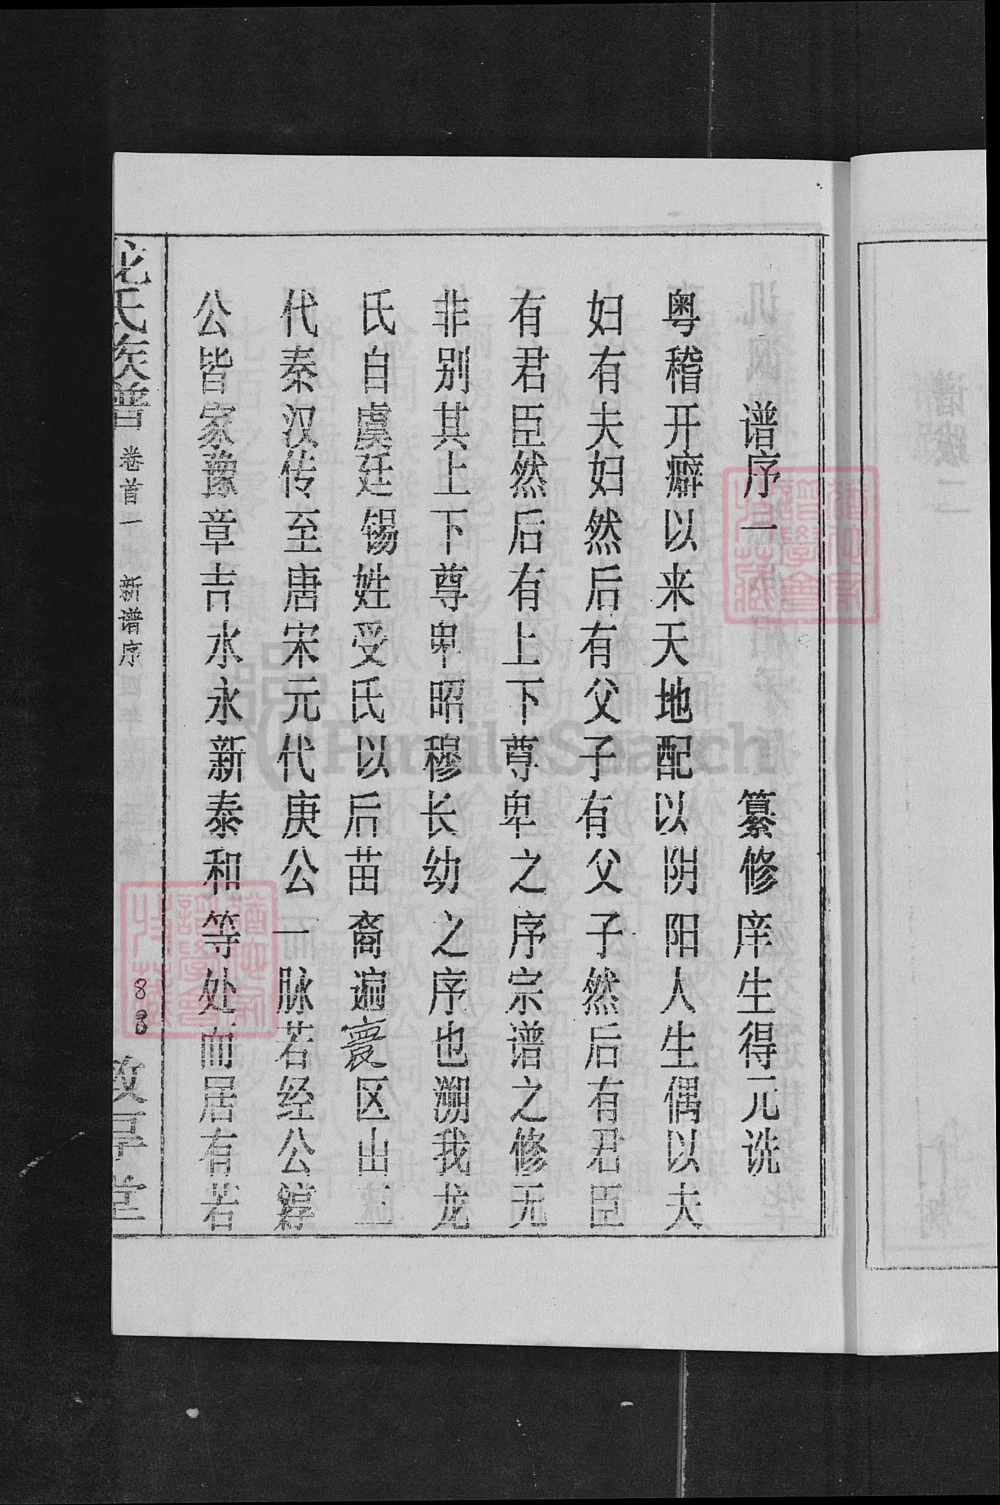 谱序一 纂修庠生得元诜
粤稽开癖以来天地配以阴阳人生偶以夫
妇有夫妇然后有父子有父子然后有君臣
有君臣然后有上下尊卑之序宗谱之修无
非别其上下尊卑昭穆长幼之序也溯我龙
氏自虞廷锡姓受氏以后苗裔遍寰区山工
代秦汉传至唐宋元代庚公一脉若经公淳
公皆家豫章吉水永新泰和等处而居有若
龙氏族谱 卷首一 新谱序 敦厚堂
88
FamilySearch
谱 二